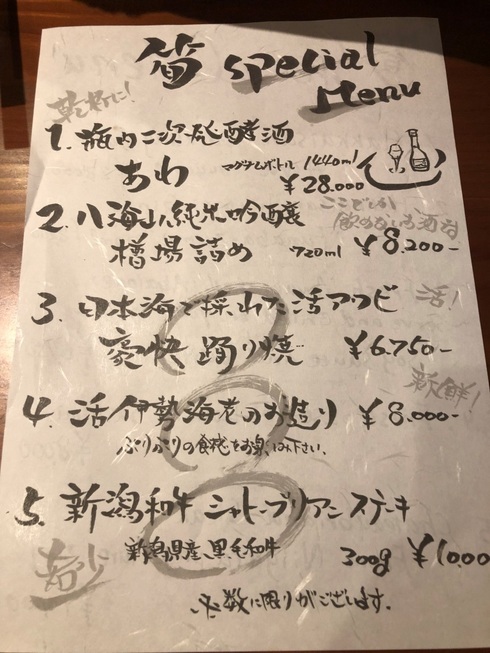 special
Menu
乾杯に!
1. 瓶内二次発酵酒
あわ マグナムボトル 1440ml
¥28.000
2. 八海山純米吟醸
樽場詰め 720ml ¥8.200-
ここでしか
飲めないお酒です
3. 日本海で採れた活アワビ 活!
豪快踊り焼 ¥6.750-
新鮮!
4. 活伊勢海老のお造り ¥8.000-
ぷりぷりの食感をお楽しみ下さい。
5. 新潟和牛 シャトーブリアンステーキ
新潟県産 黒毛和牛 300g ¥10.00
※数に限りがございます。